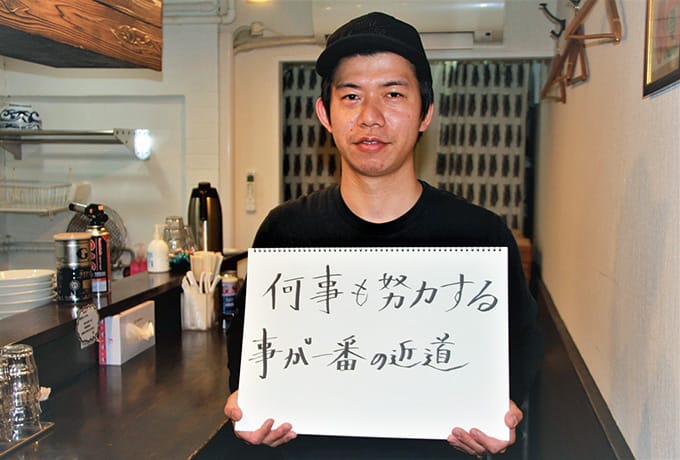 何事も努力する
事が一番の近道